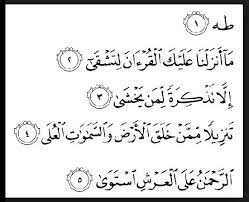 طه ١
مَآ أَنزَلْنَا عَلَيْكَ ٱلْقُرْءَانَ لِتَشْقَىٰٓ ٢
إِلَّا تَذْكِرَةً لِّمَن يَخْشَىٰ ٣
تَنزِيلًا مِّمَّنْ خَلَقَ ٱلْأَرْضَ وَٱلسَّمَٰوَٰتِ ٱلْعُلَى ٤
ٱلرَّحْمَٰنُ عَلَى ٱلْعَرْشِ ٱسْتَوَىٰ ٥